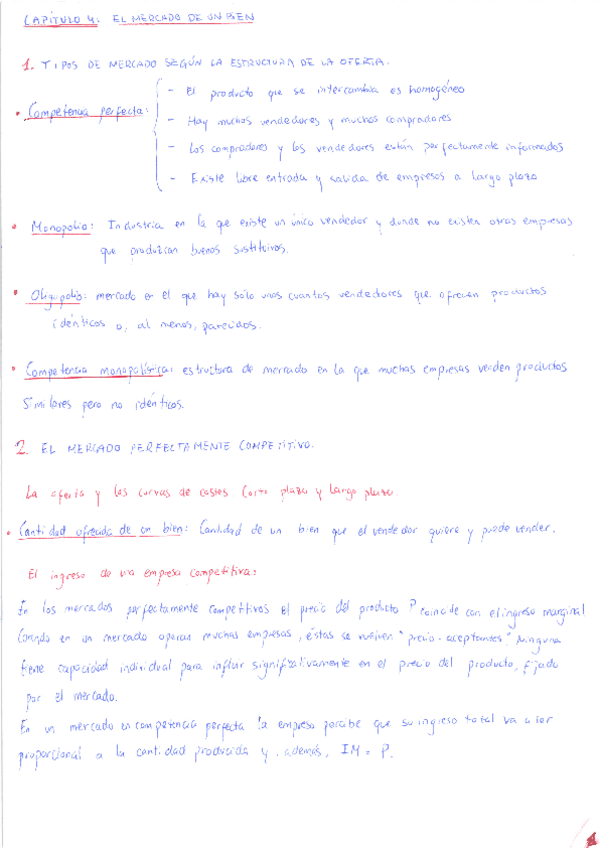 CAPÍTULO 4: EL MERCADO DE UN BIEN
1. TIPOS DE MERCADO SEGÚN LA ESTRUCTURA DE LA OFERTA.
• Competencia perfecta:
- El producto que se intercambia es homogéneo
- Hay muchos vendedores y muchos compradores
- Los compradores y los vendedores están perfectamente informados
- Existe libre entrada y salida de empresas a largo plazo
• Monopolio: Industria en la que existe un único vendedor y donde no existen otras empresas
que produzcan buenos sustitutivos.
• Oligopolio: mercado en el que hay sólo unos cuantos vendedores que ofrecen productos
idénticos o, al menos, parecidos.
• Competencia monopolística: estructura de mercado en la que muchas empresas venden productos
similares pero no idénticos.
2. EL MERCADO PERFECTAMENTE COMPETITIVO.
La oferta y las curvas de costes corto plazo y largo plazo.
• Cantidad ofrecida de un bien: Cantidad de un bien que el vendedor quiere y puede vender.
El ingreso de una empresa competitiva:
En los mercados perfectamente competitivos el precio del producto P coincide con el ingreso marginal
Cuando en un mercado operan muchas empresas, éstas se vuelven "precio-aceptantes". Ninguna
tiene capacidad individual para influir significativamente en el precio del producto, fijado
por el mercado.
En un mercado en competencia perfecta la empresa percibe que su ingreso total va a ser
proporcional a la cantidad producida y, además, IM = P.